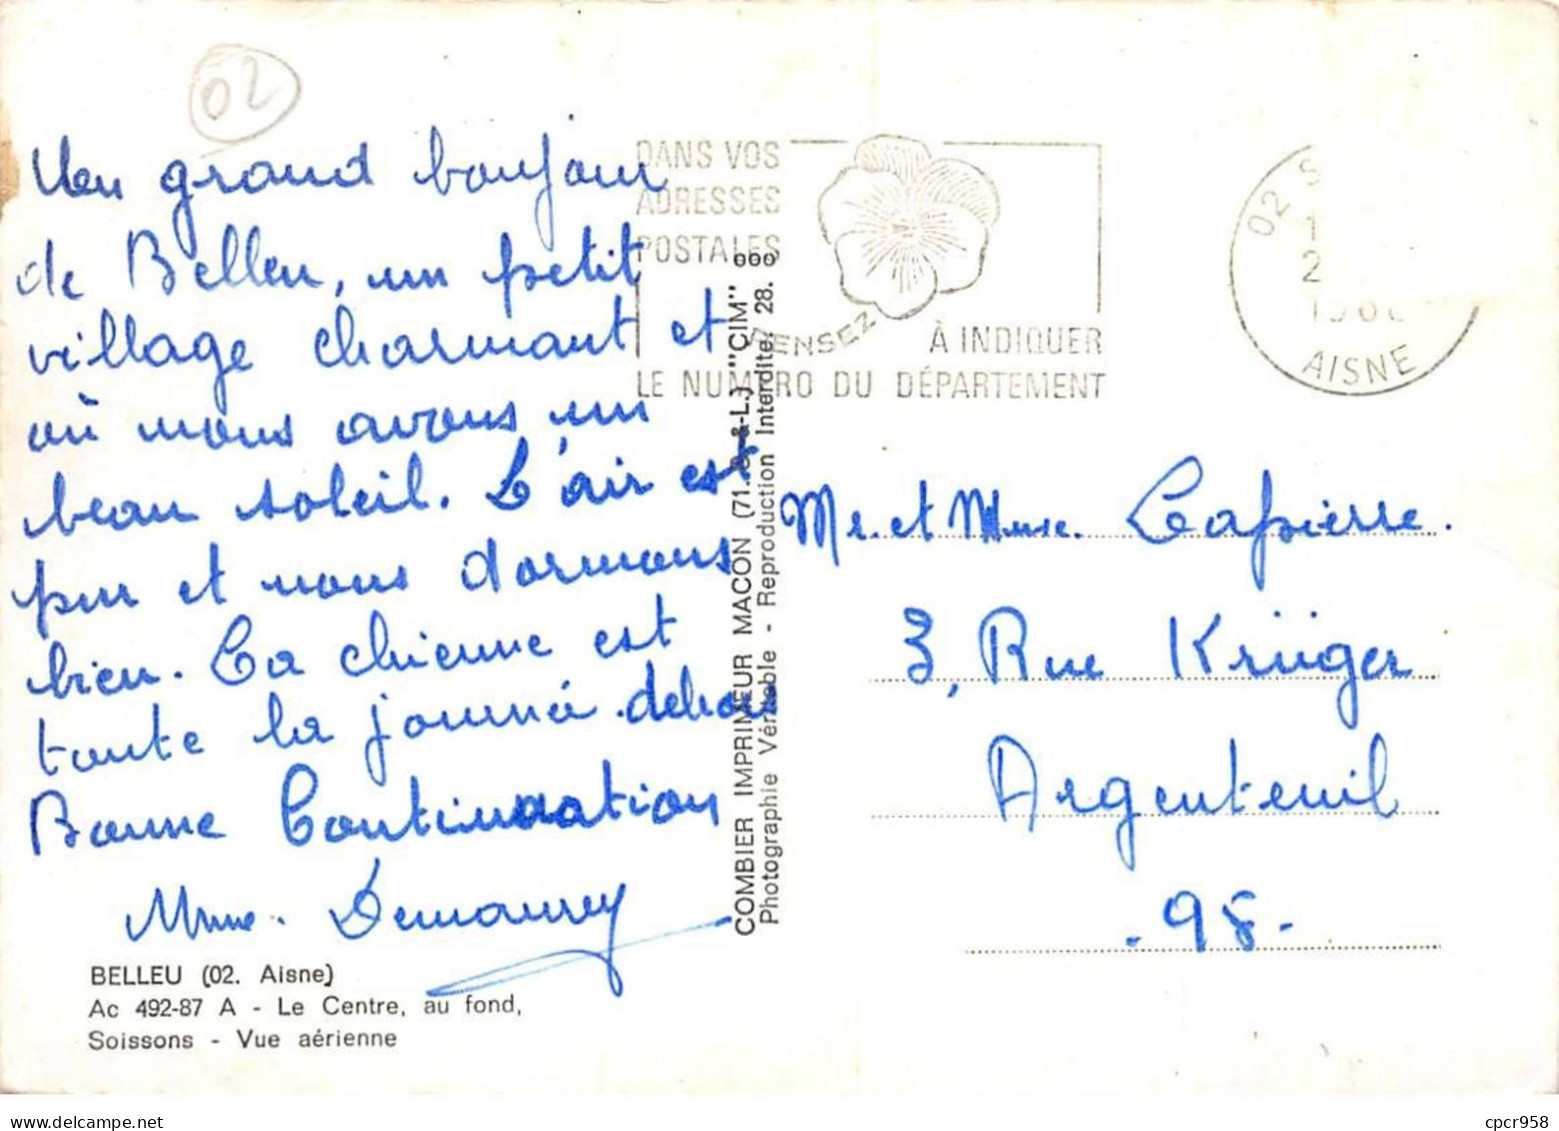 02
Un grand bonjour
de Belleu, un petit
village charmant et
où nous avons un
beau soleil. L'air est
pur et nous dormons
bien. La chienne est
toute la journée dehors
Bonne Continuation
Mme.
BELLEU (02. Aisne)
Ac 492-87 A - Le Centre, au fond,
Soissons - Vue aérienne
COMBIER IMPRIMEUR MACON (71. S-&-L.) "CIM"
Photographie Véritable - Reproduction Interdite. 28. 000
DANS VOS
ADRESSES
POSTALES
PENSEZ
À INDIQUER
LE NUMÉRO DU DÉPARTEMENT
02 S
1
2
AISNE
Mr. et Mme. Lapierre.
3, Rue Krüger
Argenteuil
- 98 -
cpcr958